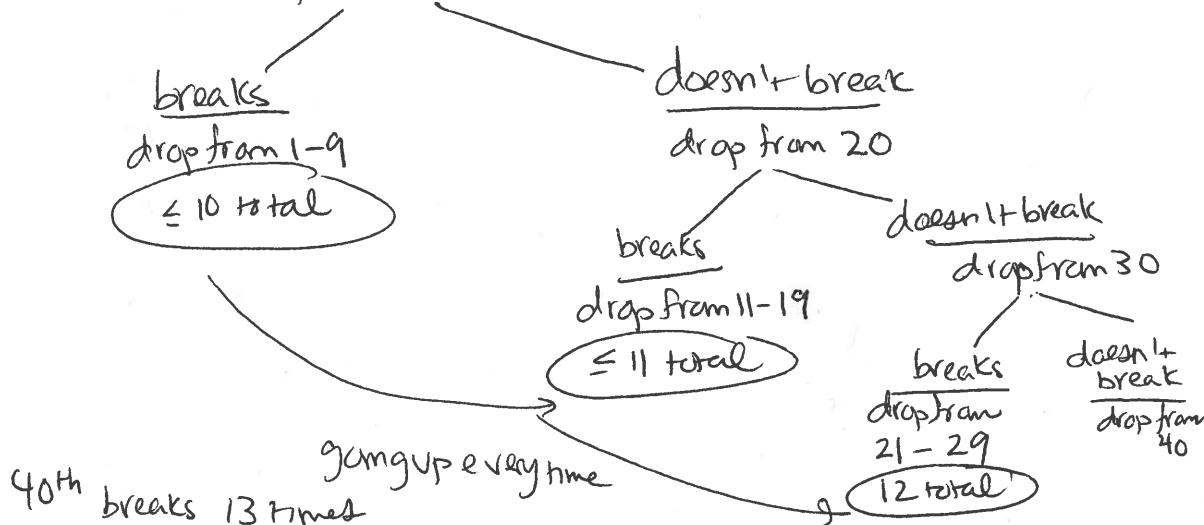 breaks
drop from 1-9
≤ 10 total
doesn't break
drop from 20
breaks
drop from 11-19
≤ 11 total
doesn't break
drop from 30
breaks
drop from
21-29
12 total
doesn't
break
drop from
40
going up every time
40th breaks 13 times